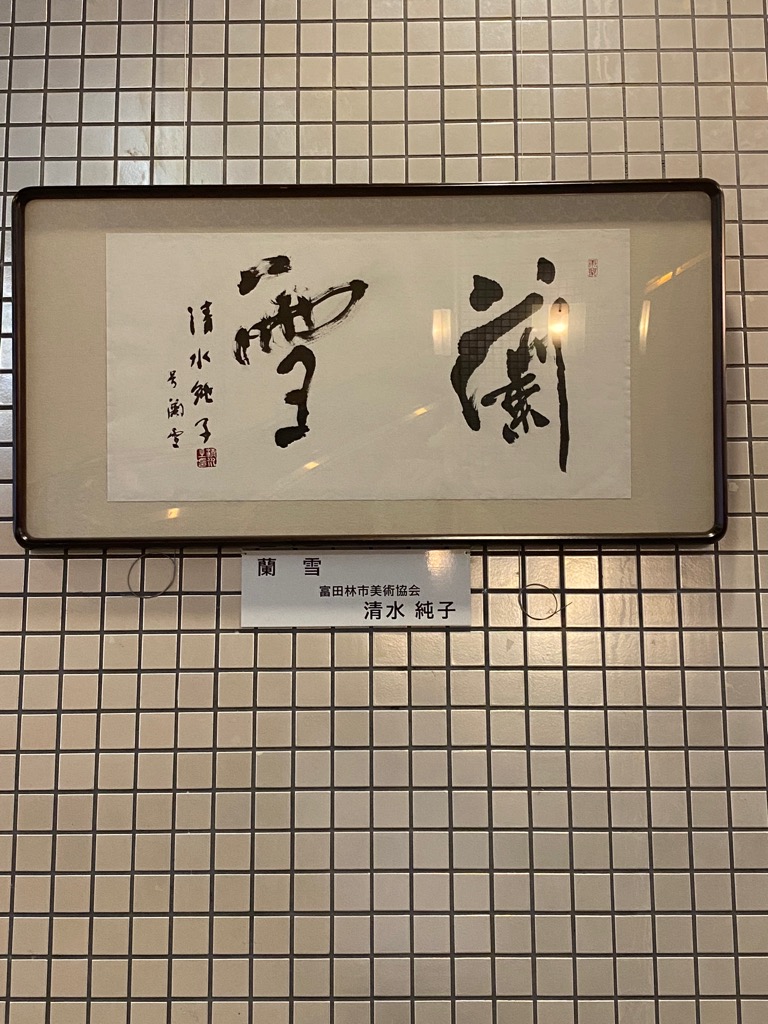 蘭雪
清水純子
号蘭雪
蘭　雪
富田林市美術協会
清水 純子